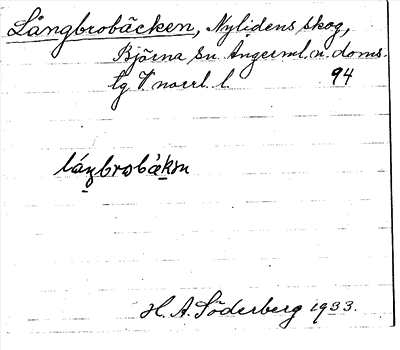 Långbrobäcken, Nylidens skog,
Björna sn. Ångerml. n. doms.
lg V norrl. l. 94
H. A. Söderberg 1933.